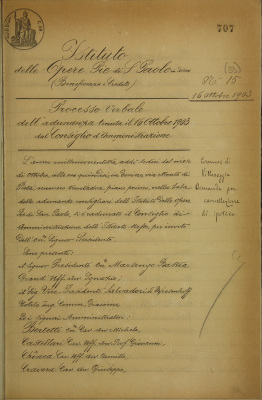 707
Istituto
delle Opere Pie di S. Paolo
(Beneficenza e Credito)
N. 15
16 Ottobre 1903
Processo Verbale
dell'adunanza tenuta il 16 Ottobre 1903
dal Consiglio d'Amministrazione
L'anno millenovecentotrè, addì sedici del mese
di ottobre, alle ore quindici, in Torino, via Monte di
Pietà, numero trentadue, piano primo, nella sala
delle adunanze consigliari dell'Istituto delle opere
Pie di San Paolo, si è radunato il Consiglio di
amministrazione dell'Istituto stesso, per invito
dell'Ill. Signor Presidente.
Comune di
Villareggia
Domanda per
Sono presenti:
il Signor Presidente
Grand. Uff. Avv. Ignazio;
il Vice Presidente Salvadori di Wiesenhoff
Nobile Ing. Comm. Giacomo
Ed i signori Amministratori:
Berletti Cav. Avv. Michele
Castellari Cav. Uff. Avv. Prof. Giovanni
Chiesa Cav. Uff. Avv. Camillo
Cravero Cav. Avv. Giuseppe